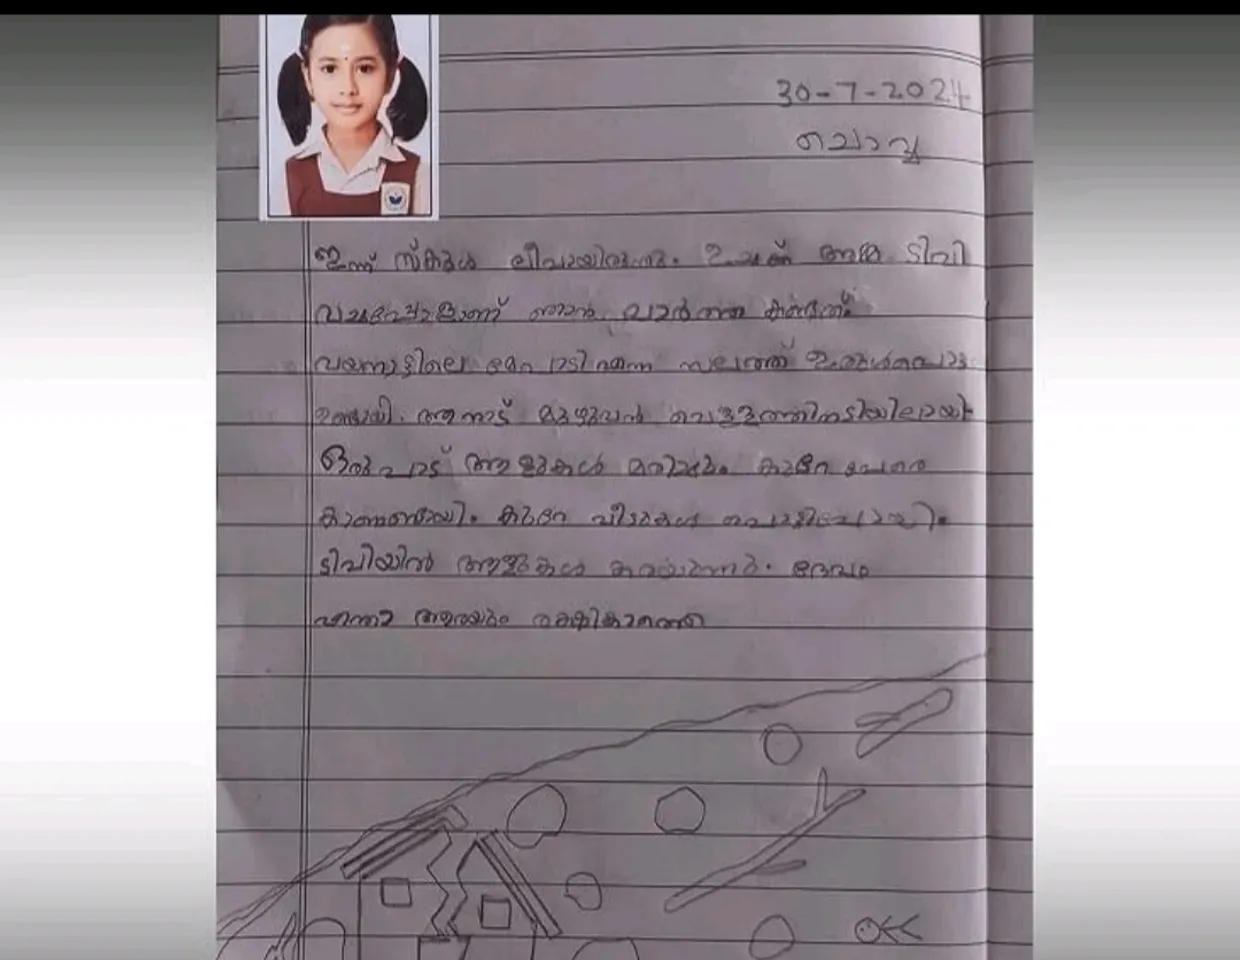 30-7-2024
ചൊവ്വ
ഇന്ന് സ്കൂൾ ലീവായിരുന്നു. ഉച്ചക്ക് അമ്മ ടിവി
വച്ചപ്പോളാണ് ഞാൻ വാർത്ത കണ്ടത്.
വയനാട്ടിലെ മേപ്പാടി എന്ന സ്ഥലത്ത് ഉരുൾപൊട്ട
ഉണ്ടായി. ആ നാട് മുഴുവൻ വെള്ളത്തിനടിയിലായി
ഒരുപാട് ആളുകൾ മരിച്ചു. കുറേ പേരെ
കാണണ്ടായി. കുറേ വീടുകൾ പൊട്ടിപ്പോയി.
ടിവിയിൽ ആളുകൾ കരയുന്നു. ദൈവം
എന്താ ആരയും രക്ഷിക്കാത്തെ